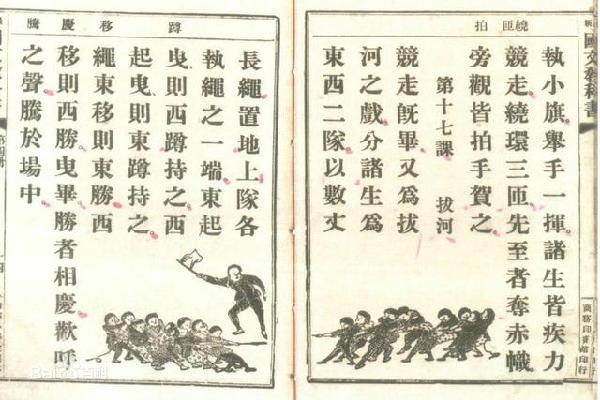 國文教科書
商務印書館印行
繞匝 拍
執小旗舉手一揮諸生皆疾力
競走繞環三匝先至者奪赤幟
旁觀皆拍手賀之
第十七課 拔河
競走旣畢又爲拔
河之戲分諸生爲
東西二隊以數丈
蹲 移 慶 騰
長繩置地上隊各
執繩之一端東起
曳則西蹲持之西
起曳則東蹲持之
繩東移則東勝西
移則西勝曳畢勝者相慶歡呼
之聲騰於場中
第四册
Baidu百科